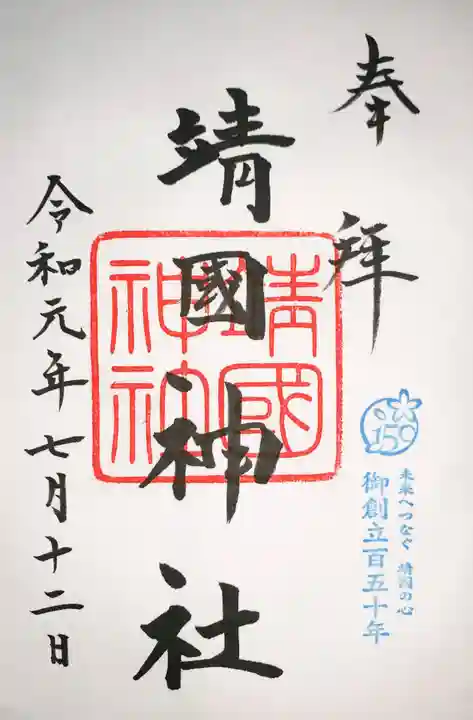 奉拜
150
未来へつなぐ 靖国の心
御創立百五十年
靖國神社
靖國
神社
令和元年七月十二日